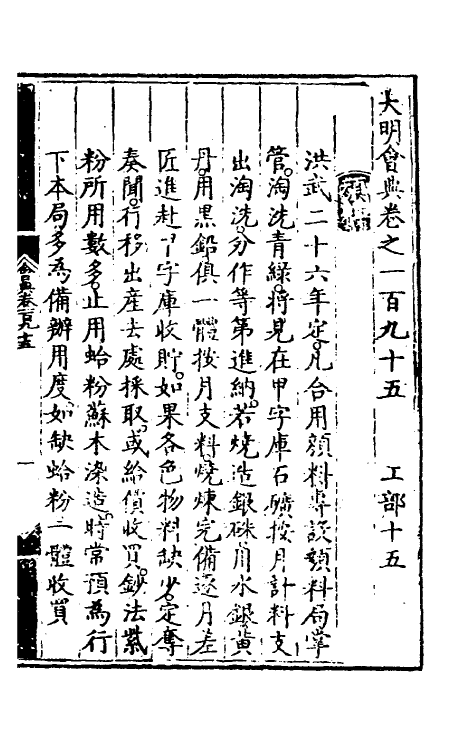 大明會典卷之一百九十五 工部十五
顏料
洪武二十六年定凡合用顏料專設顏料局掌
管淘洗青綠將見在甲字庫石礦按月計料支
出淘洗分作等第進納若燒造銀硃用水銀黃
丹用黑鉛俱一體按月支料燒煉完備逐月差
匠進赴甲字庫收貯如果各色物料缺少定奪
奏聞行移出產去處採取或給價收買鈔法紫
粉所用數多止用蛤粉蘇木染造時常預為行
下本局多為備辦用度如缺蛤粉一體收買
會典卷一百九十五
一